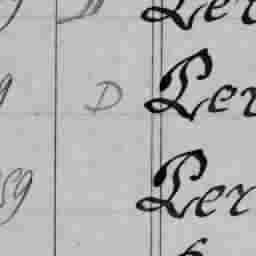 Per
9 D Per
59 Per